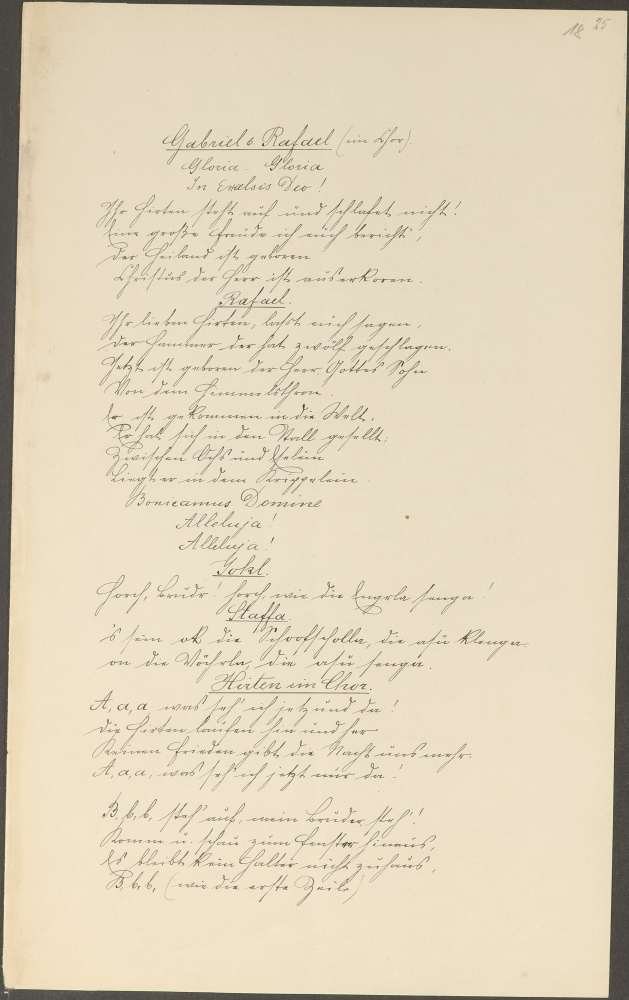 18 25
Gabriel u. Rafael (im Chor).
Gloria - Gloria
In Exzelsis Deo!
Ihr Hirten steht auf und schlafet nicht!
Eine große Freude ich euch bericht',
Der Heiland ist geboren
Christus der Herr ist auserkoren.
Rafael.
Ihr lieben Hirten, lasst euch sagen,
Der Hammer der hat zwölf geschlagen.
Jetzt ist geboren der Herr Gottes Sohn
Von dem Himmelsthron.
Er ist gekommen in die Welt.
Er hat sich in den Stall gesellt;
Zwischen Ochs und Eselein
Liegt er in dem Krippelein.
Domine
Alleluja!
Alleluja!
Jokl.
Horch, Brudr! horch, wie die Engrla senga!
Staffa.
's sein ok die Schoofscholla, die asu klenga
on die Vöchrla, die asu senga.
Hirten im Chor.
A, a, a was seh' ich jetzund da!
Die Hirten laufen hin und her
Keinen Frieden gibt die Nacht uns mehr.
A, a, a, was seh' ich jetzt nur da!
B, b, b, steh' auf, mein Bruder, steh'!
Komm u. schau zum Fenster hinaus,
Es bleibt kein Halter nicht zuhaus,
B, b, b, (wie die erste Zeile)